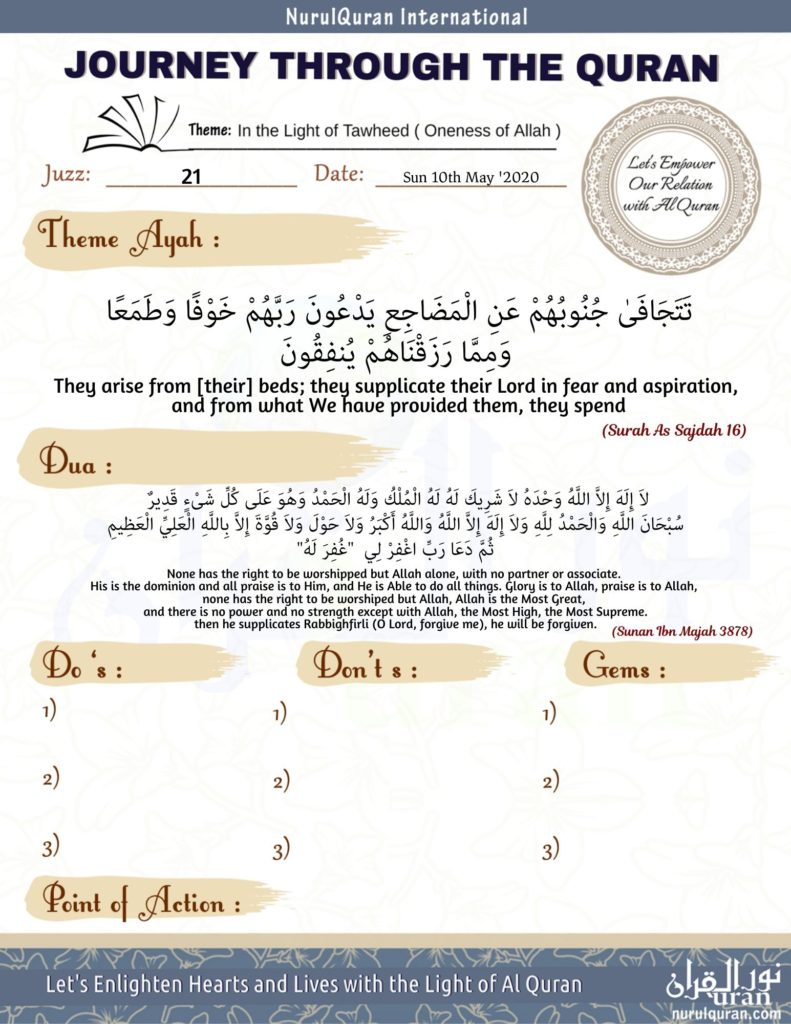 NurulQuran International
JOURNEY THROUGH THE QURAN
Theme: In the Light of Tawheed ( Oneness of Allah )
Let's Empower
Our Relation
with Al Quran
Juzz: 21 Date: Sun 10th May '2020
Theme Ayah :
تَتَجَافَىٰ جُنُوبُهُمْ عَنِ الْمَضَاجِعِ يَدْعُونَ رَبَّهُمْ خَوْفًا وَطَمَعًا
وَمِمَّا رَزَقْنَاهُمْ يُنفِقُونَ
They arise from [their] beds; they supplicate their Lord in fear and aspiration,
and from what We have provided them, they spend
(Surah As Sajdah 16)
Dua :
لاَ إِلَهَ إِلاَّ اللَّهُ وَحْدَهُ لاَ شَرِيكَ لَهُ لَهُ الْمُلْكُ وَلَهُ الْحَمْدُ وَهُوَ عَلَى كُلِّ شَىْءٍ قَدِيرٌ
سُبْحَانَ اللَّهِ وَالْحَمْدُ لِلَّهِ وَلاَ إِلَهَ إِلاَّ اللَّهُ وَاللَّهُ أَكْبَرُ وَلاَ حَوْلَ وَلاَ قُوَّةَ إِلاَّ بِاللَّهِ الْعَلِيِّ الْعَظِيمِ
ثُمَّ دَعَا رَبِّ اغْفِرْ لِي "غُفِرَ لَهُ"
None has the right to be worshipped but Allah alone, with no partner or associate.
His is the dominion and all praise is to Him, and He is Able to do all things. Glory is to Allah, praise is to Allah,
none has the right to be worshiped but Allah, Allah is the Most Great,
and there is no power and no strength except with Allah, the Most High, the Most Supreme.
then he supplicates Rabbighfirli (O Lord, forgive me), he will be forgiven.
(Sunan Ibn Majah 3878)
Do 's : Don't s : Gems :
1) 1) 1)
2) 2) 2)
3) 3) 3)
Point of Action :
Let's Enlighten Hearts and Lives with the Light of Al Quran
نور القرآن
uran
nurulquran.com